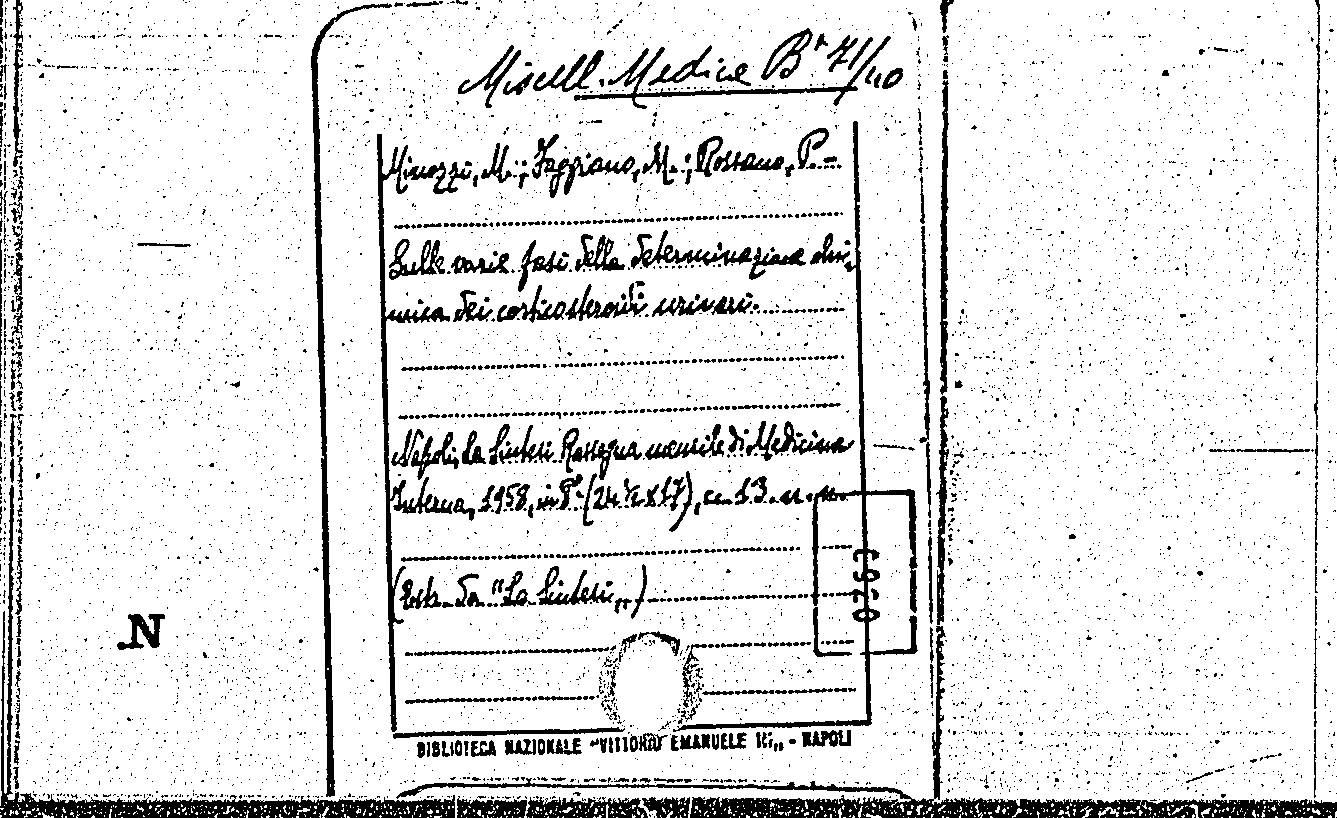 Miscell. Medica Bª 71/40
Minozzi, M.; Faggiano, M.; Rossano, P.-
Sulle varie fasi della determinazione chi-
mica dei corticosteroidi urinari.
Napoli, La Sintesi Rassegna mensile di Medicina
Interna, 1958, in 8º (24½x17), cc. 13. n. n.
(Estr. da "La Sintesi,,)
0763
N
BIBLIOTECA NAZIONALE "VITTORIO EMANUELE III,, - NAPOLI